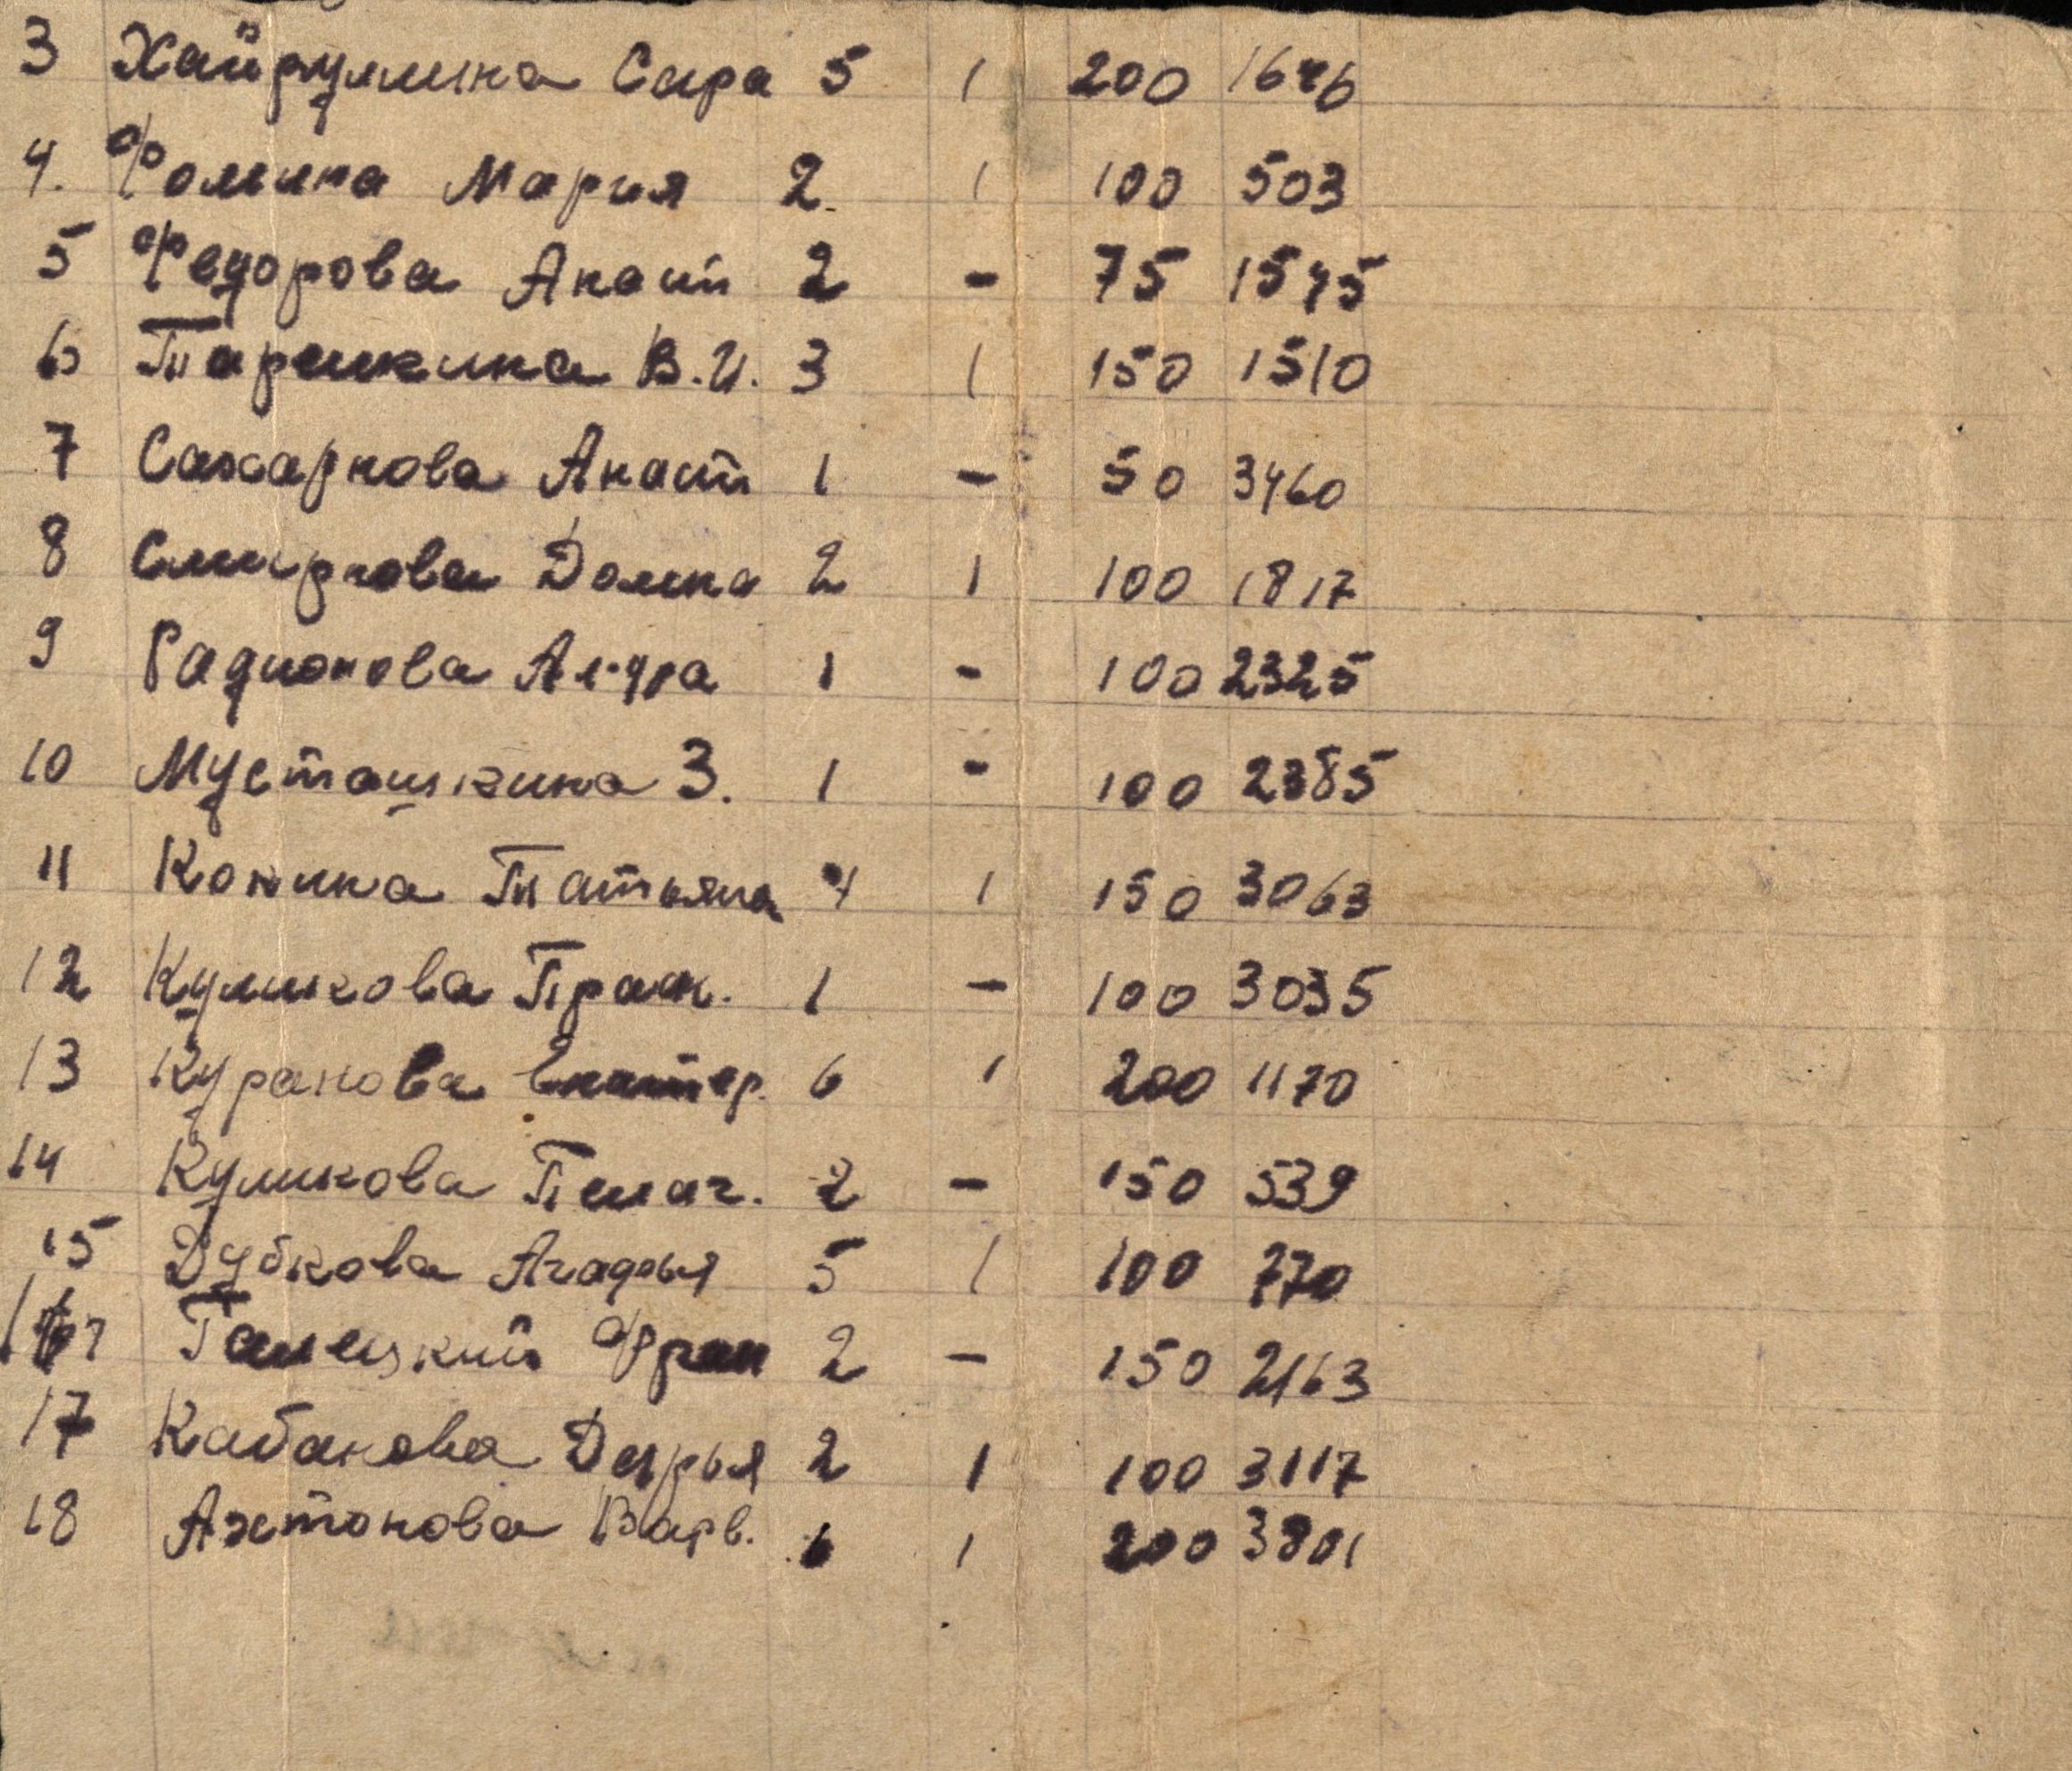 3 Хайрулина Сара 5 1 200 1646
4. Фомина Мария 2 1 100 503
5 Федорова Анаст 2 - 75 1545
6 Тарушкина В.И. 3 1 150 1510
7 Сахарнова Анаст 1 - 50 3460
8 Смирнова Домна 2 1 100 1817
9 Радионова Ал-дра 1 - 100 2325
10 Мусташкина З. 1 - 100 2385
11 Конина Татьяна 4 1 150 3063
12 Куликова Праск. 1 - 100 3035
13 Куранова Екатер. 6 1 200 1170
14 Куликова Пелаг. 2 - 150 539
15 Дубкова Агафья 5 1 100 770
Галецкий Фран 2 - 150 2163
17 Кабанова Дарья 2 1 100 3117
18 Антонова Варв. 6 1 200 3801